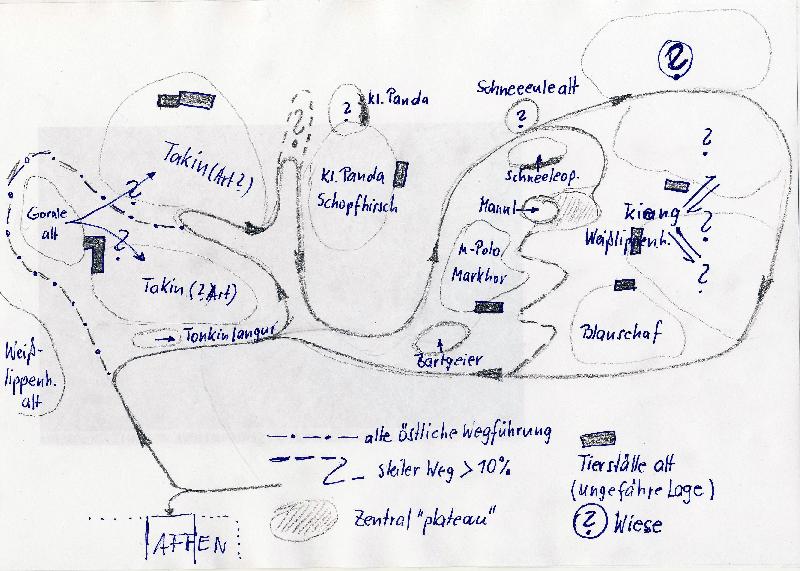 ?
Schneeeule alt
?
?
Kl. Panda
?
Takin (Art 2)
Kl. Panda
Schopfhirsch
Schneeleop.
?
Manul
?
Gorale
alt
?
Kiang
?
Weißlippenh.
?
M-Polo
Markhor
Takin (2. Art)
Tonkinlangur
Blauschaf
Bartgeier
Weiß-
lippenh.
alt
alte östliche Wegführung
steiler Weg > 10%
Tierställe alt
(ungefähre Lage)
Zentral "plateau"
? Wiese
AFFEN